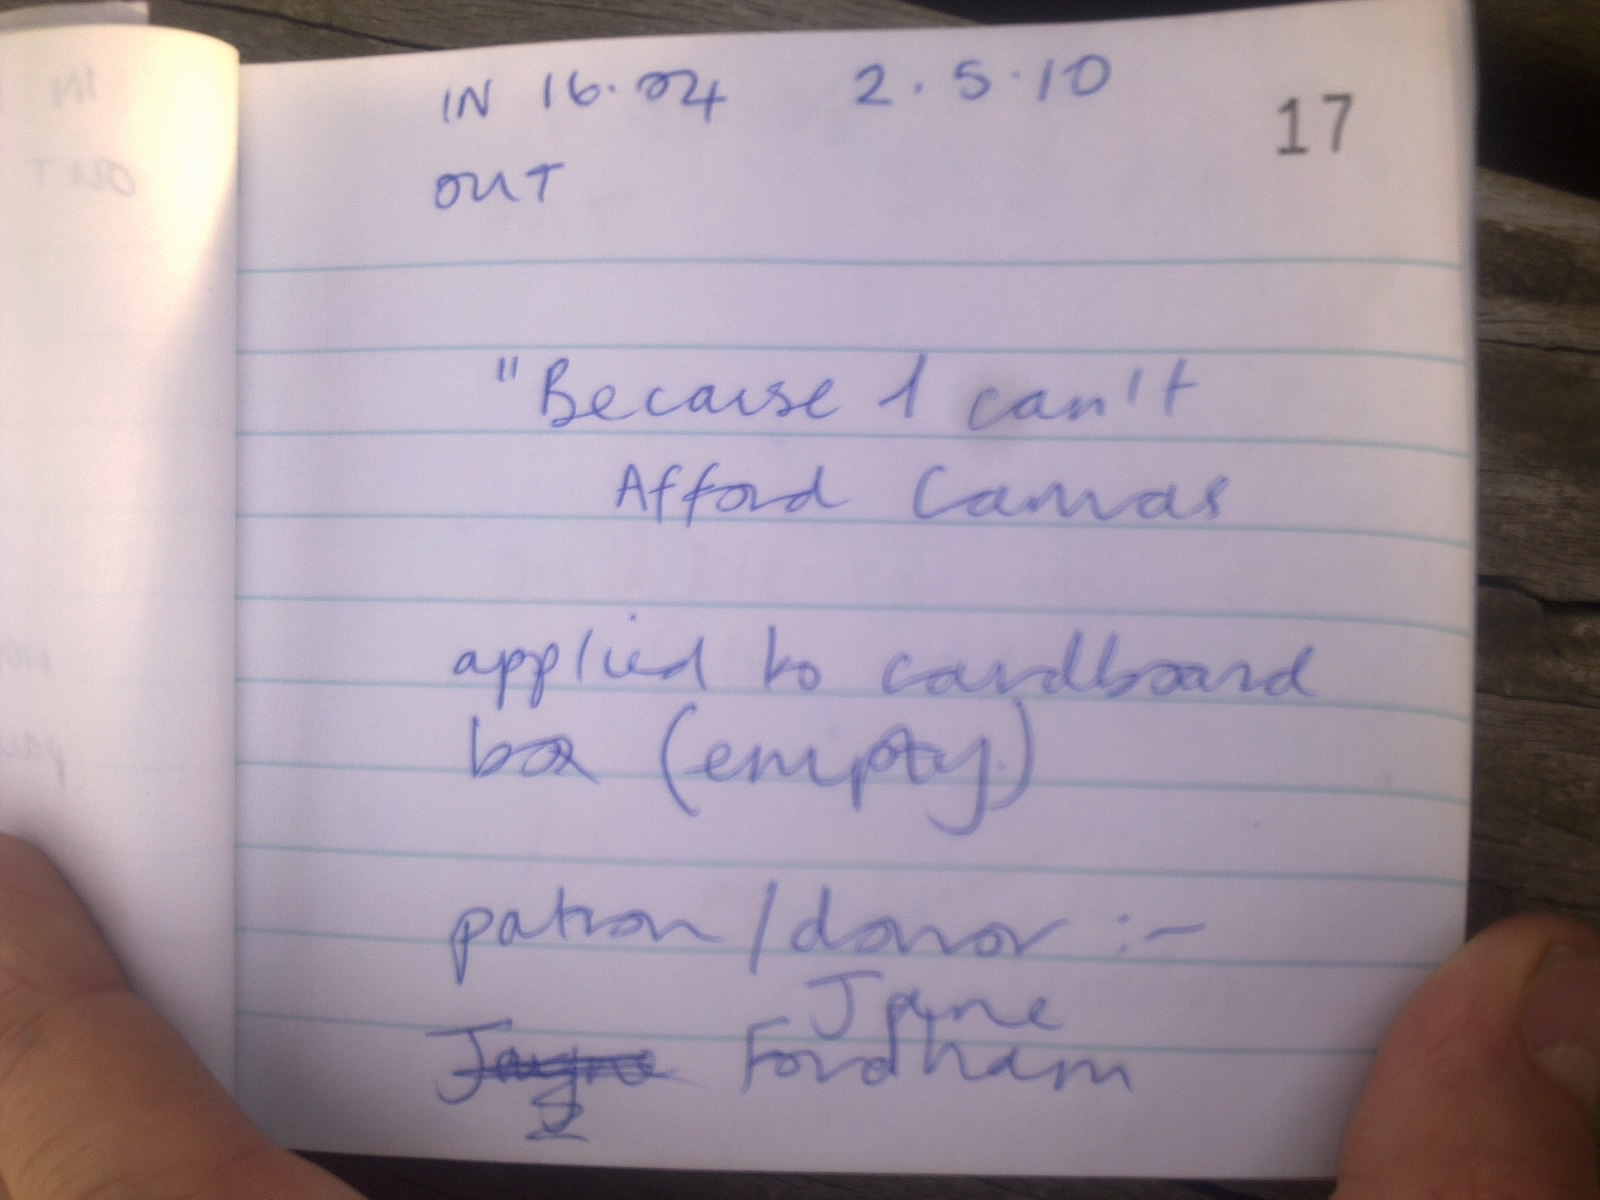 IN 16.24 2.5.10
17
OUT
"Because I can't
Afford Canvas
applied to cardboard
box (empty)
patron / donor :-
Jane
Jayne Fordham